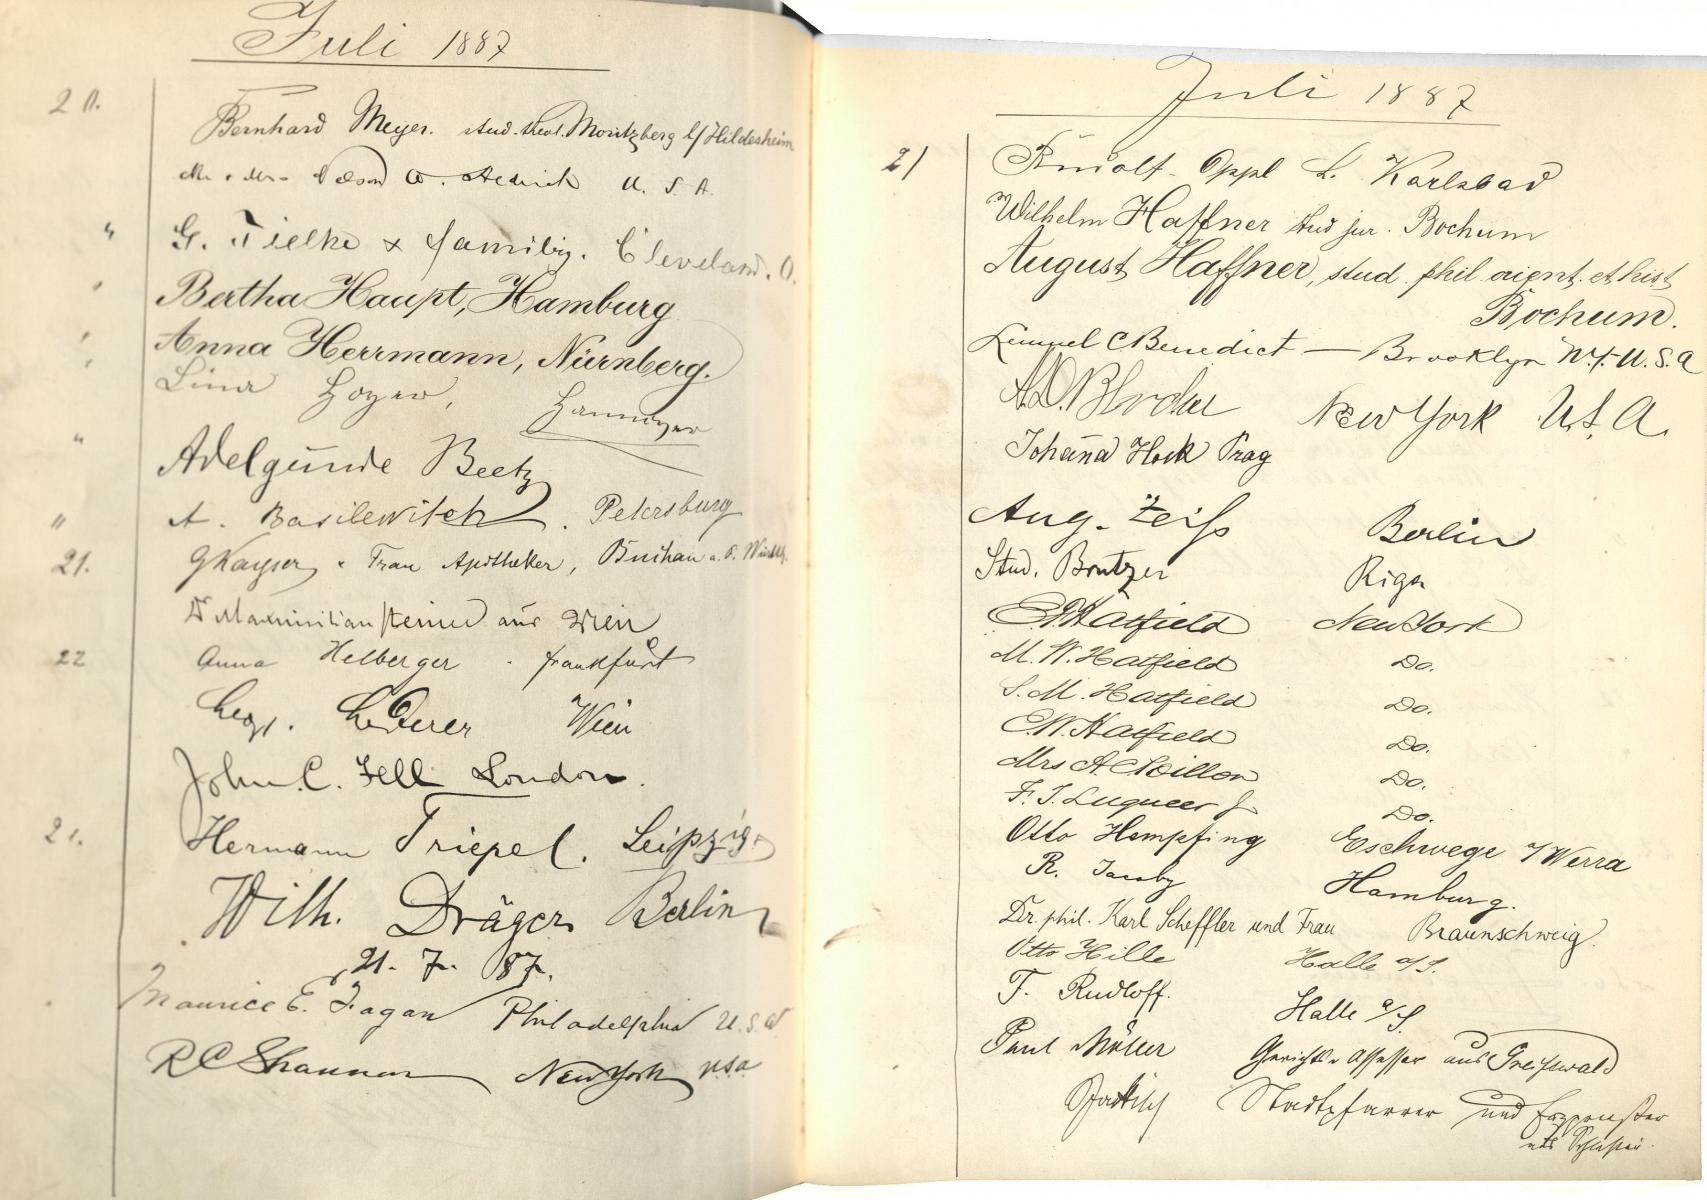 Juli 1887
20.
Bernhard Meyer. stud. theol. Moritzberg b/Hildesheim
Mr & Mrs W. U. S. A.
" G. Tielke & family. Cleveland. O.
" Bertha Haupt, Hamburg
" Anna Herrmann, Nürnberg.
" Lina Hoyer, Hannover
" Adelgunde Beetz
" A. Basilewitch. Petersburg
21. G Kayser & Frau Apotheker,
Dr Maximilian Steiner aus Wien
22 Anna Helberger. Frankfurt
Lederer Wien
John. C. Fell London.
21. Hermann Triepel. Leipzig.
Wilh. Dräger Berlin
21. 7. 87.
Maurice E. Fagan Philadelphia U. S. A
R C Shannon New York usa
Juli 1887
21 Rudolf Oppl Karlsbad
Wilhelm Haffner stud jur. Bochum
August Haffner, stud. phil. orient. et hist
Bochum.
Lemuel C Benedict — Brooklyn N.Y. U. S. A
New York U. S. A.
Johanna Hock Prag
Aug. Zeiß Berlin
Stud. Brutzer Riga
Hatfield New York
M. W. Hatfield Do.
S. M. Hatfield Do.
C. W. Hatfield Do.
Mrs A C Dillon Do.
F. T. Luqueer Jr Do.
Otto Hempfing Eschwege a/Werra
R. Jacoby Hamburg.
Dr. phil. Karl Scheffler und Frau Braunschweig.
Otto Hille Halle a/S.
T. Rudloff. Halle a/S.
Paul Möller Gerichts Assessor aus Greifswald
Stadtpfarrer und